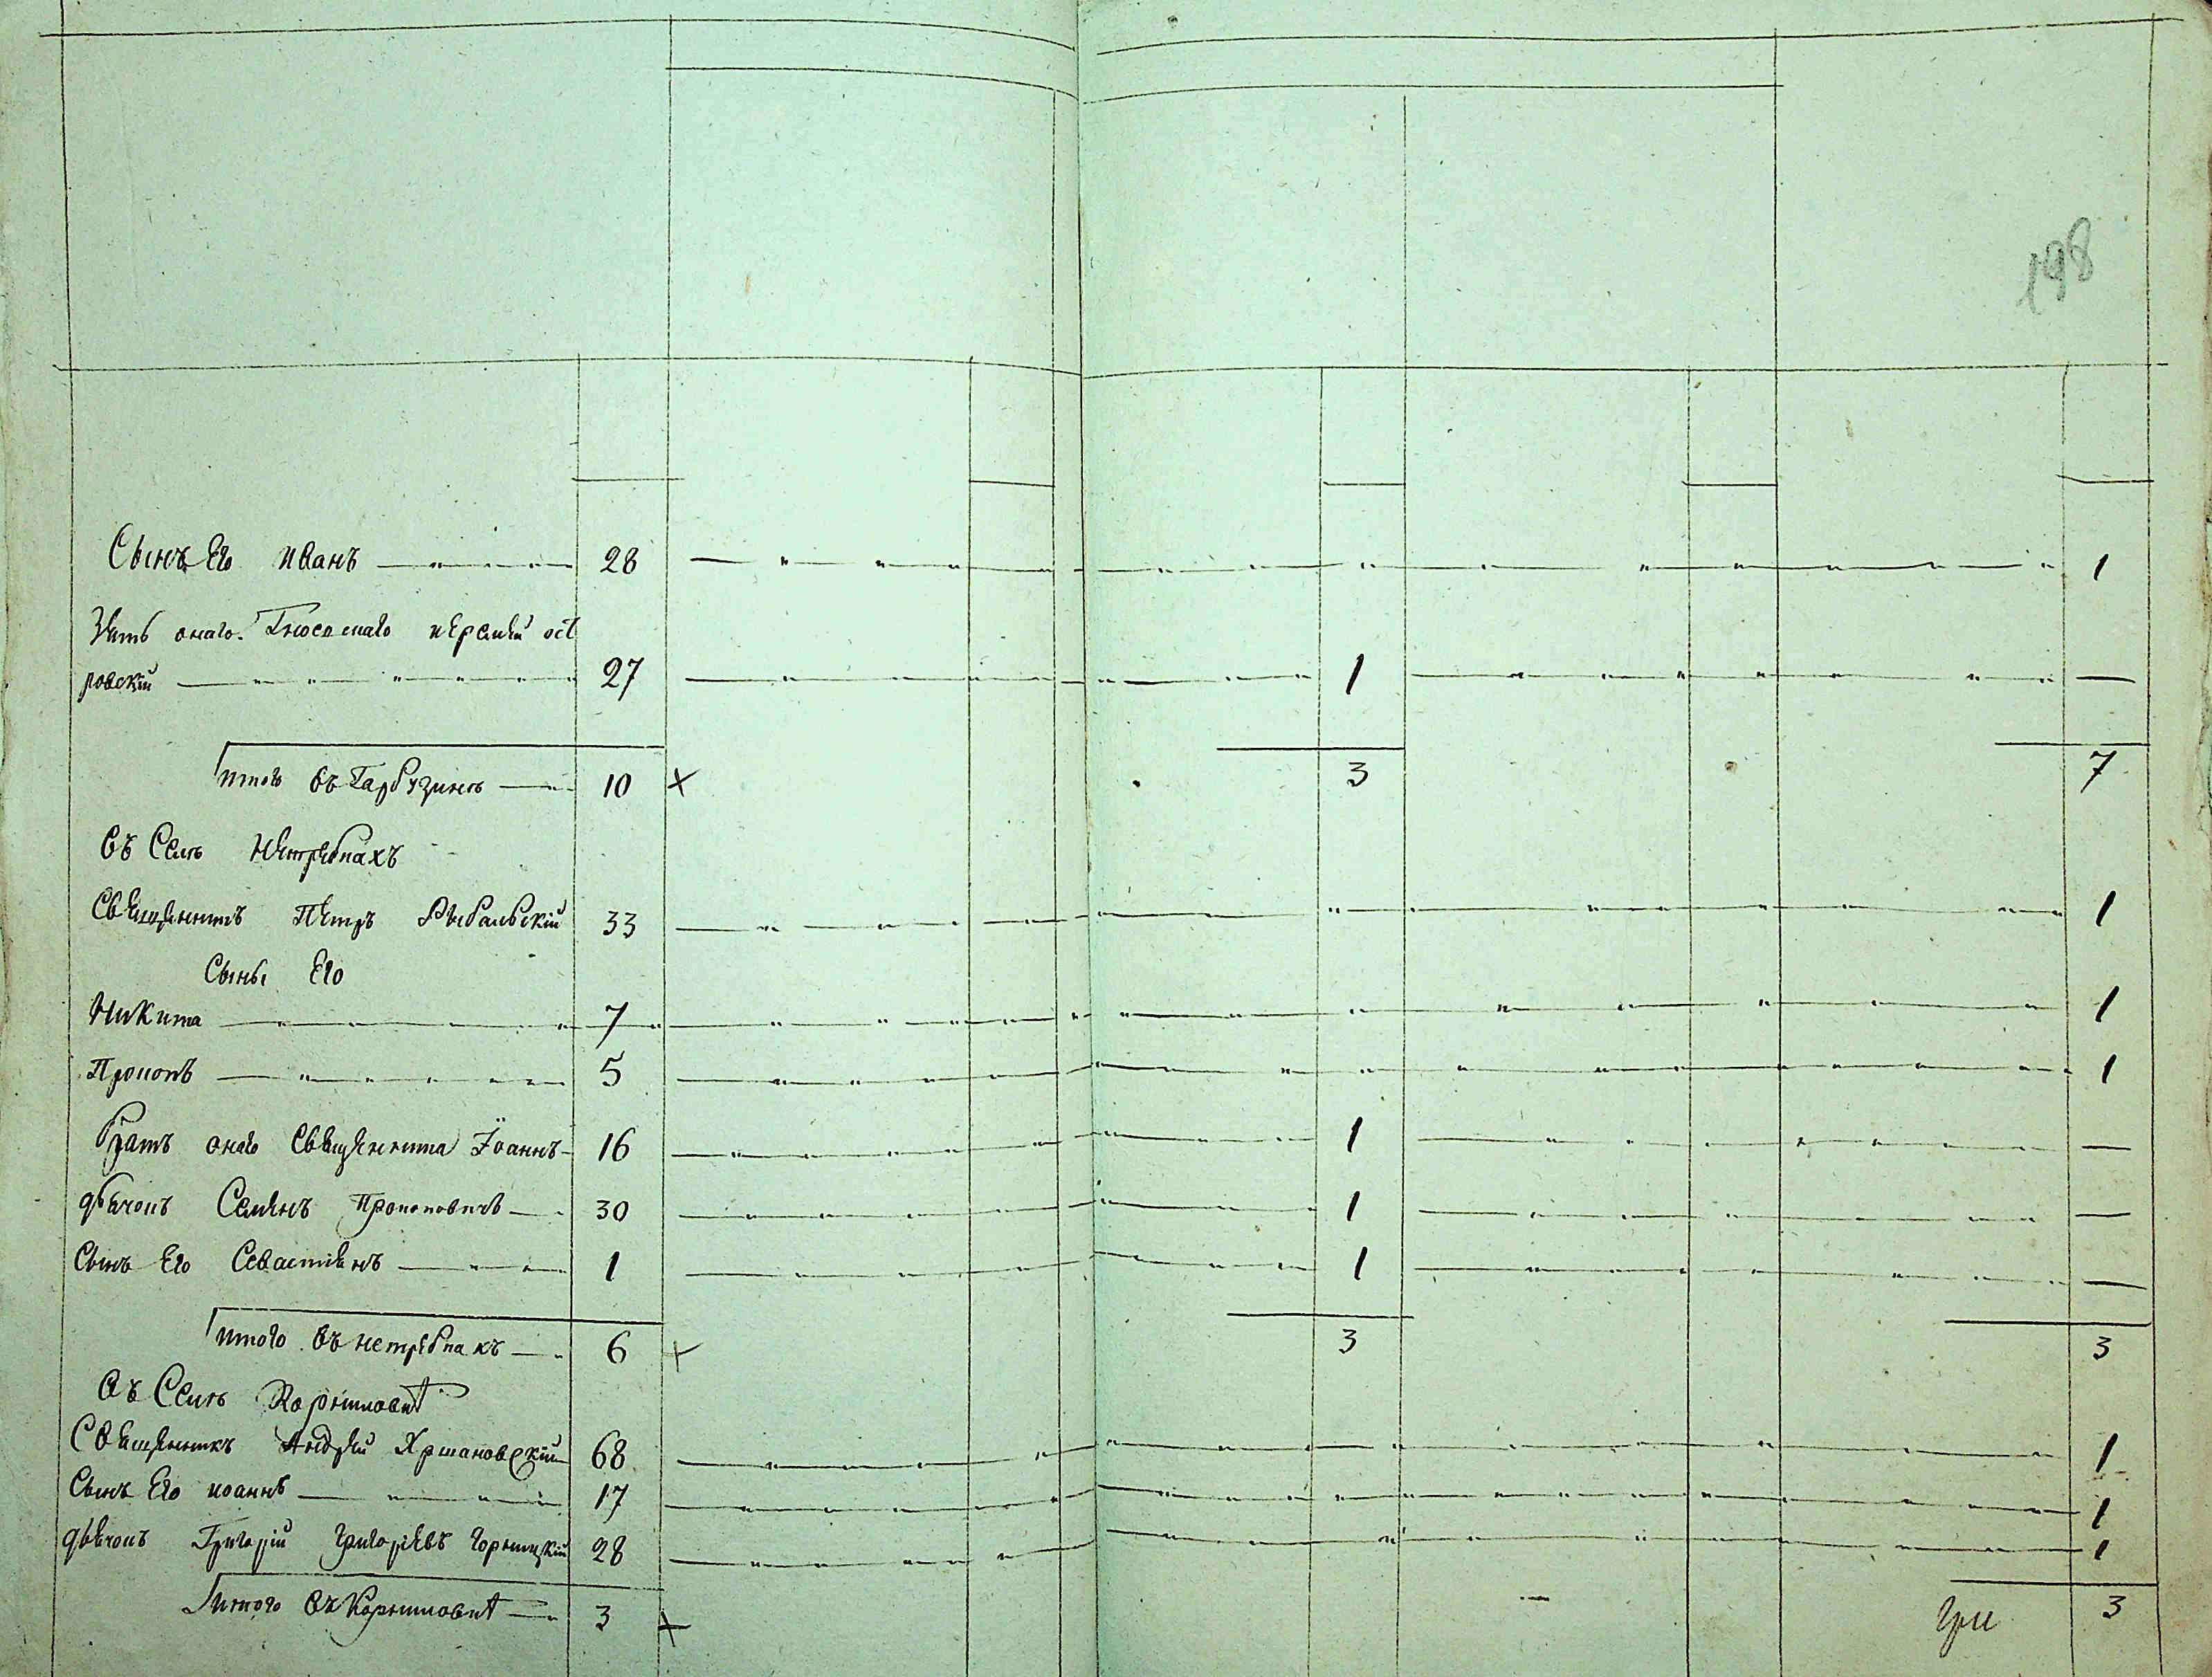 198
Сынъ Его иванъ 28 1
Зять онаго Еремей ост
ровскій 27 1 —
итого въ Гарбузинѣ 10 3 7
въ Селѣ Нетребкахъ
Священникъ Петръ Рыбальскій 33 1
Сыны Его
Никита 7 1
Прокопъ 5 1
братъ онаго Священника Іоаннъ 16 1 —
дьячокъ Семенъ Прокоповичъ 30 1 —
Сынъ Его Севастіянъ 1 1 —
итого въ нетребкахъ 6 3 3
въ Селѣ
Священникъ Андрей Хршановскій 68 1
Сынъ Его иоаннъ 17 1
дьячокъ Григорій Григоріевъ 28 1
итого въ 3 3